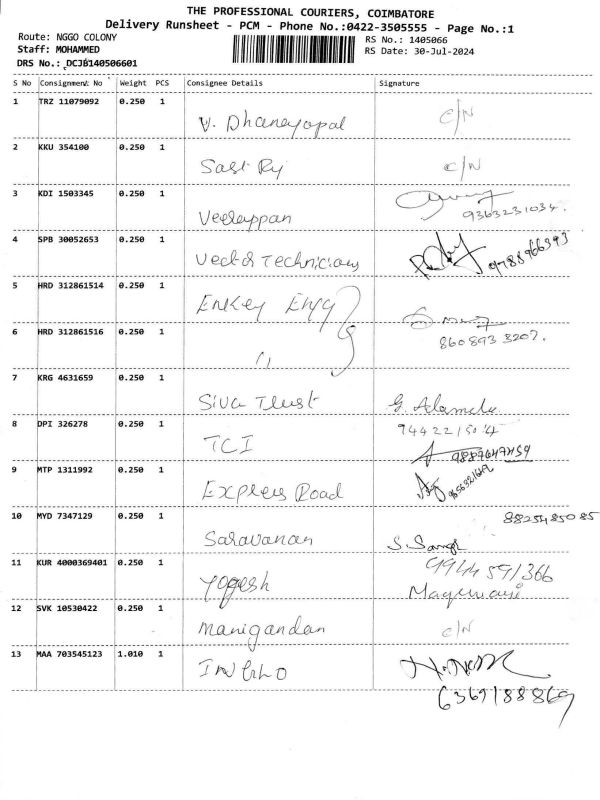 THE PROFESSIONAL COURIERS, COIMBATORE
Delivery Runsheet - PCM - Phone No.:0422-3505555 - Page No.:1
Route: NGGO COLONY
RS No.: 1405066
Staff: MOHAMMED
RS Date: 30-Jul-2024
DRS No.: DCJB140506601
S No Consignment No Weight PCS Consignee Details Signature
1 TRZ 11079092 0.250 1 V. Dhanayopal C/N
2 KKU 354100 0.250 1 Sast Ry C/N
3 KDI 1503345 0.250 1 Veerappan
9363231034.
4 SPB 30052653 0.250 1 Vector Technicians 9788966393
5 HRD 312861514 0.250 1 Enkey Engg
6 HRD 312861516 0.250 1 " 860893 3207.
7 KRG 4631659 0.250 1 Siva Trust G. Alamelu
8 DPI 326278 0.250 1 TCI
9 MTP 1311992 0.250 1 Express Road
8825485085
10 MYD 7347129 0.250 1 Saravanan
11 KUR 4000369401 0.250 1 Yogesh 9944591366
12 SVK 10530422 0.250 1 Manigandan C/N
13 MAA 703545123 1.010 1
6369188869